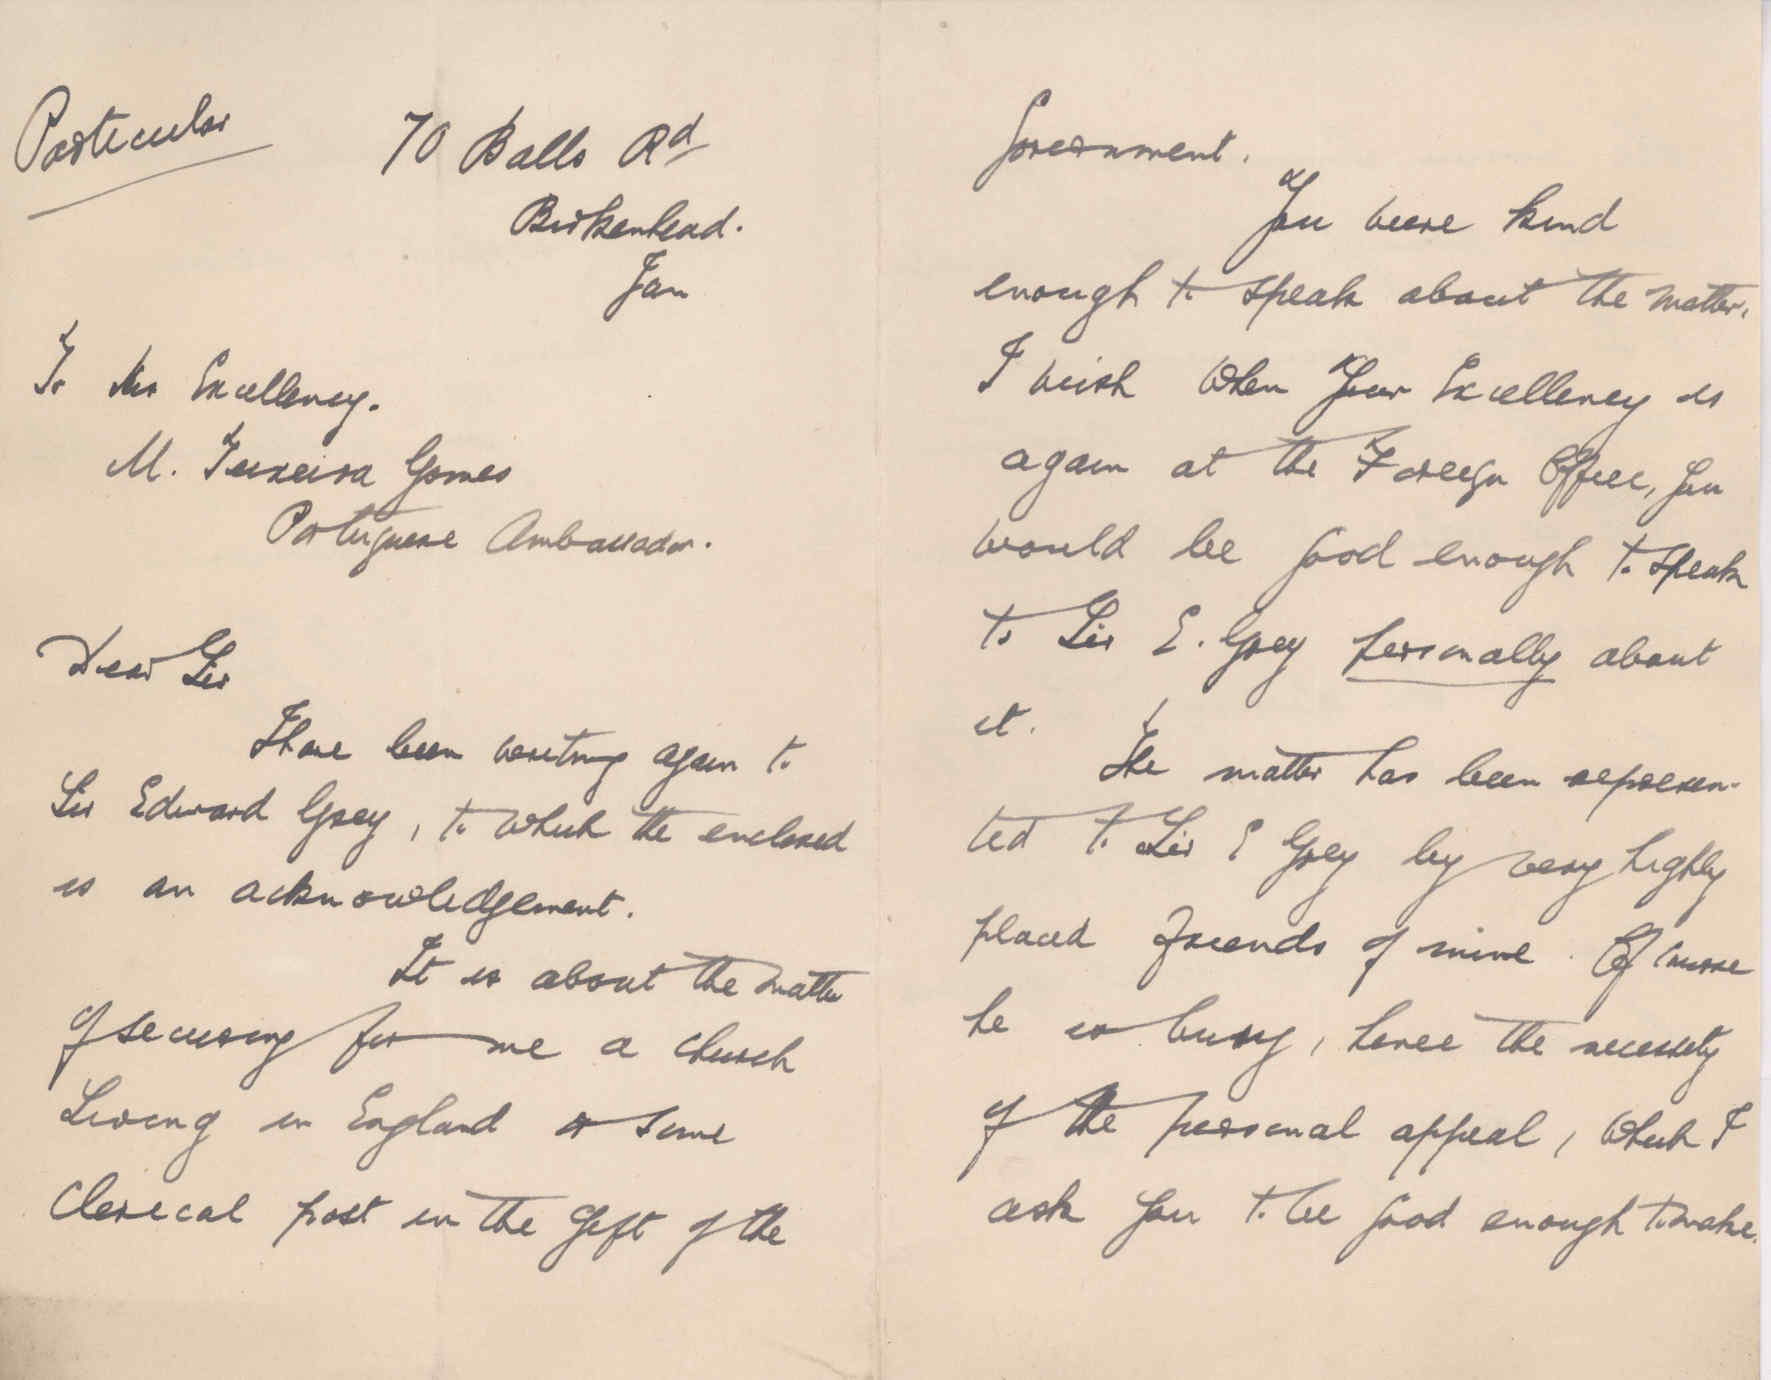 Particular
70 Balls Rd
Birkenhead.
Jan
To His Excellency.
M. Teixeira Gomes
Portuguese Ambassador.
Dear Sir
I have been writing again to
Sir Edward Grey, to which the enclosed
is an acknowledgement.
It is about the matter
of securing for me a church
Living in England or some
Clerical post in the gift of the
Government.
You were kind
enough to speak about the matter.
I wish when Your Excellency is
again at the Foreign Office, you
would be good enough to speak
to Sir E. Grey personally about
it.
The matter has been represen-
ted to Sir E Grey by very highly
placed friends of mine. Of course
he is busy, hence the necessity
of the personal appeal, which I
ask you to be good enough to make.